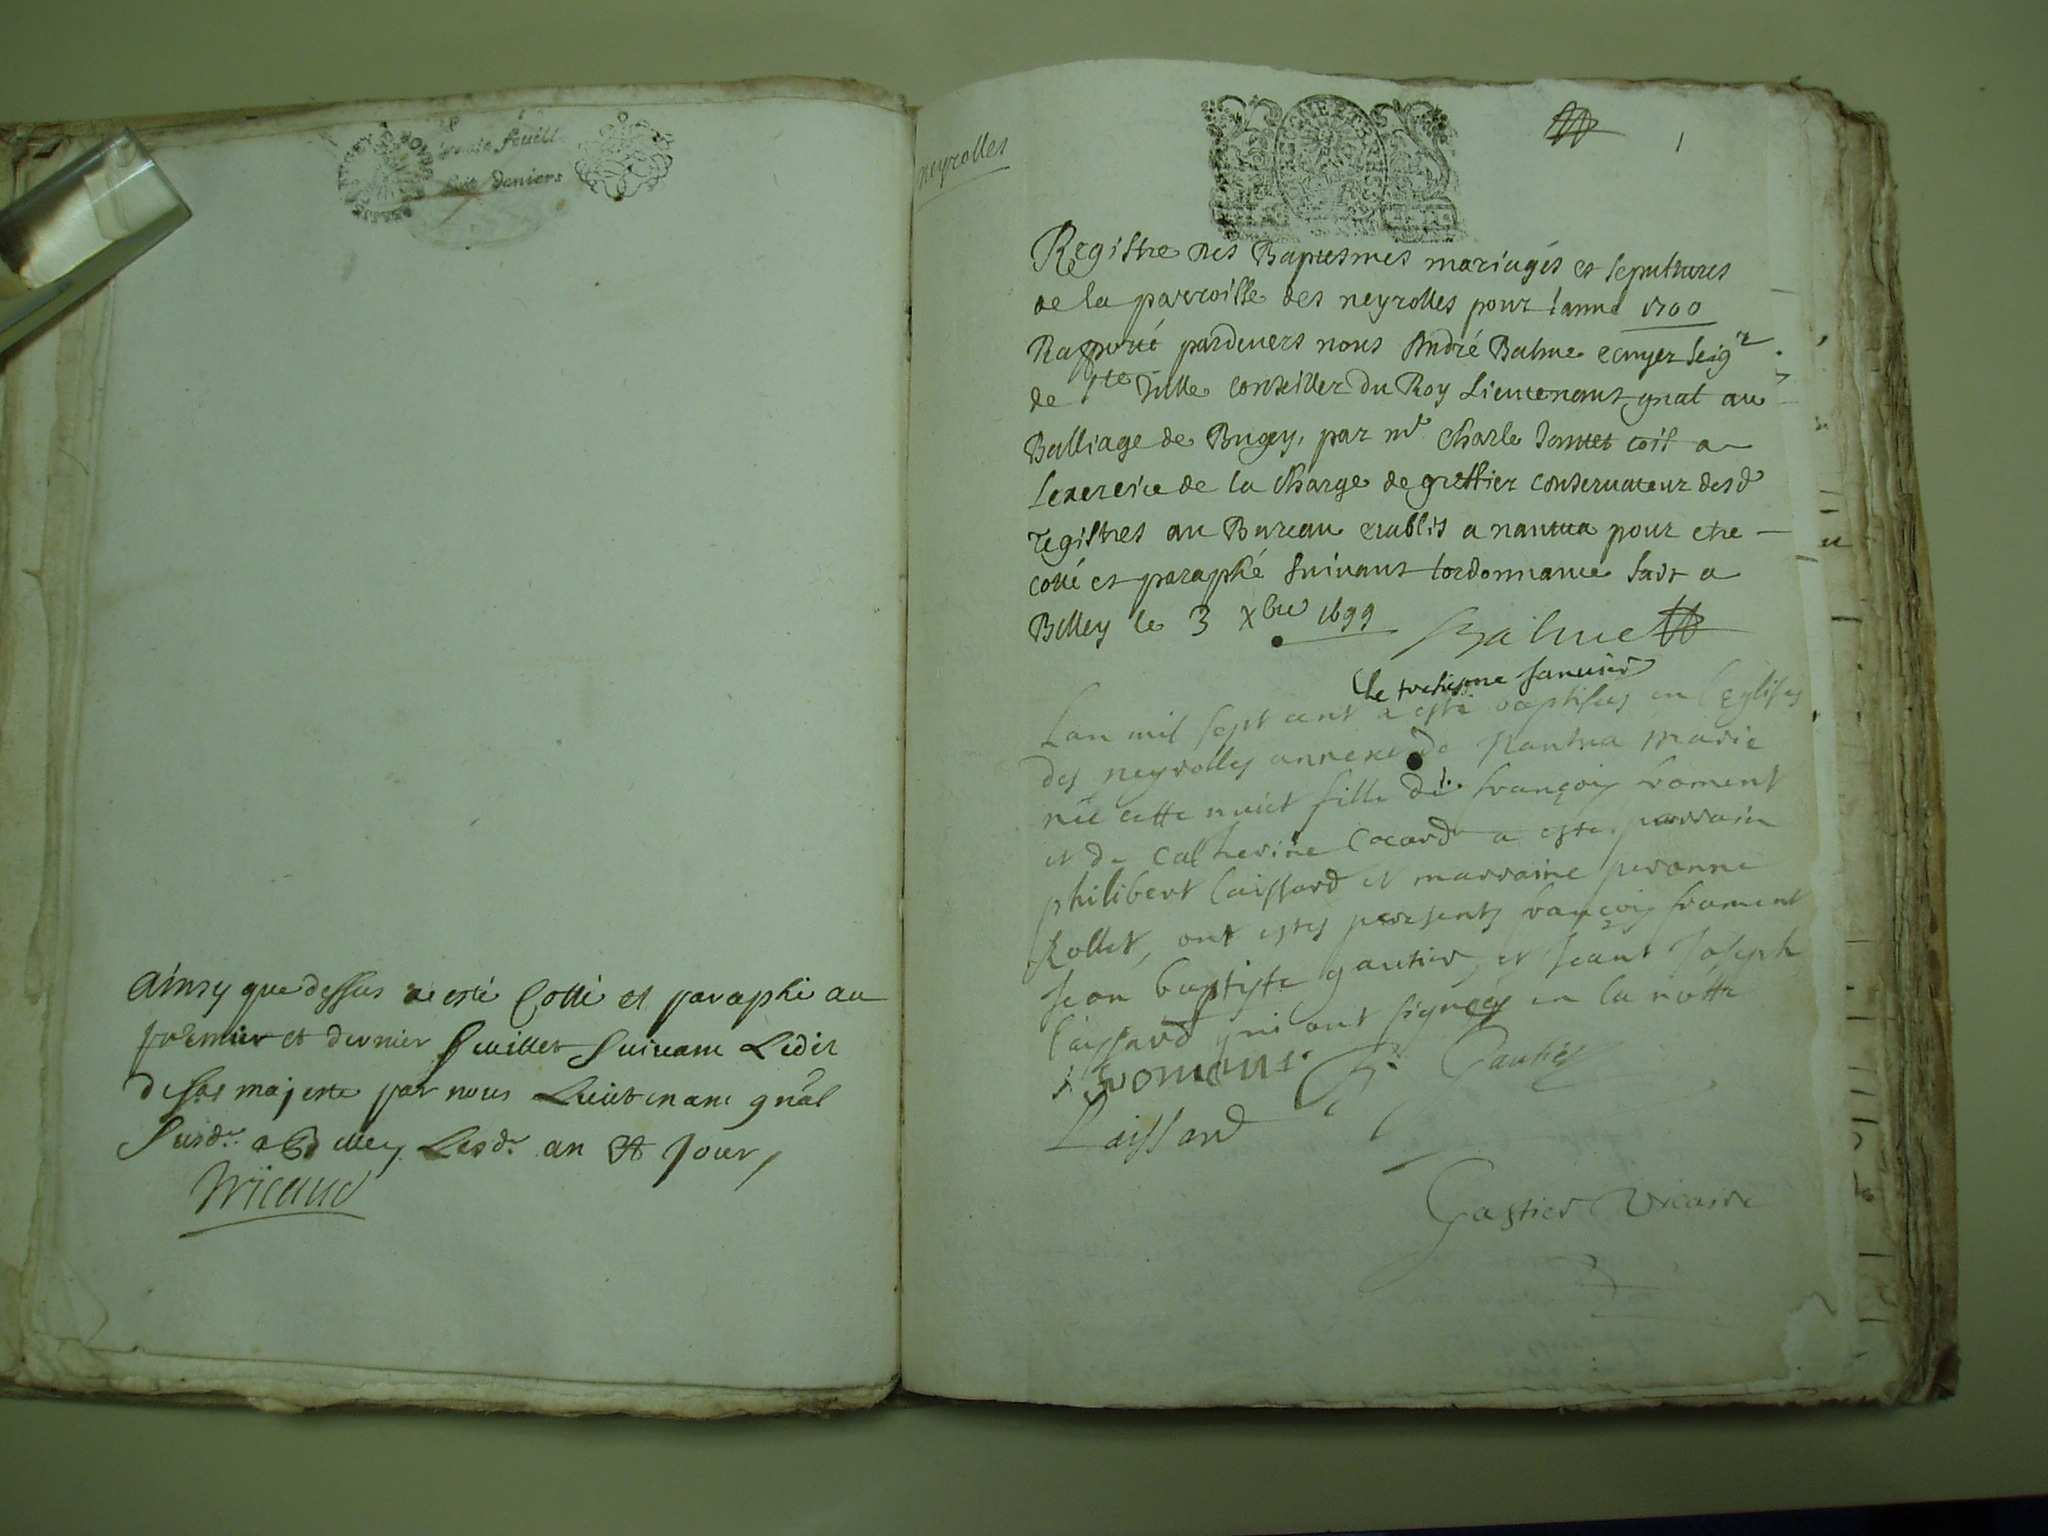 feuill
huit deniers
Ainsy que dessus a esté Cotté et paraphé au
premier et dernier feuillet Suivant Ledit
de sa majesté par nous Lieutenant gnãl
Susd. a Belley Lesd. an et Jour,
Tricaud
neyrolles
1
Registre des Baptesmes mariages et sepultures
de la parroisse des neyrolles pour lanné 1700
Rapporté pardevers nous André Balme ecuyer seigr
de Ste Julle conseiller du Roy Lieutenant gnal au
Balliage de Bugey, par mr Charle commis a
lexercice de la charge de greffier conservateur desd
registres au Bureau etablis a nantua pour etre
cotté et paraphé suivant lordonnance fait a
Belley le 3 xbre 1699 Balme
Le treisieme Janvier
Lan mil sept cent a esté baptisée en leglise
des neyrolles annexe de Nantua marie
née cette nuict fille de françois froment
et de Catherine Cocard a esté parrain
philibert laissard et marraine peronne
Rollet, ont estés presents françois froment
Jean baptiste gautier et Jean Joseph
laissard qui ont signés en la notte
froment Gautier
Laissard
Gastier Vicaire